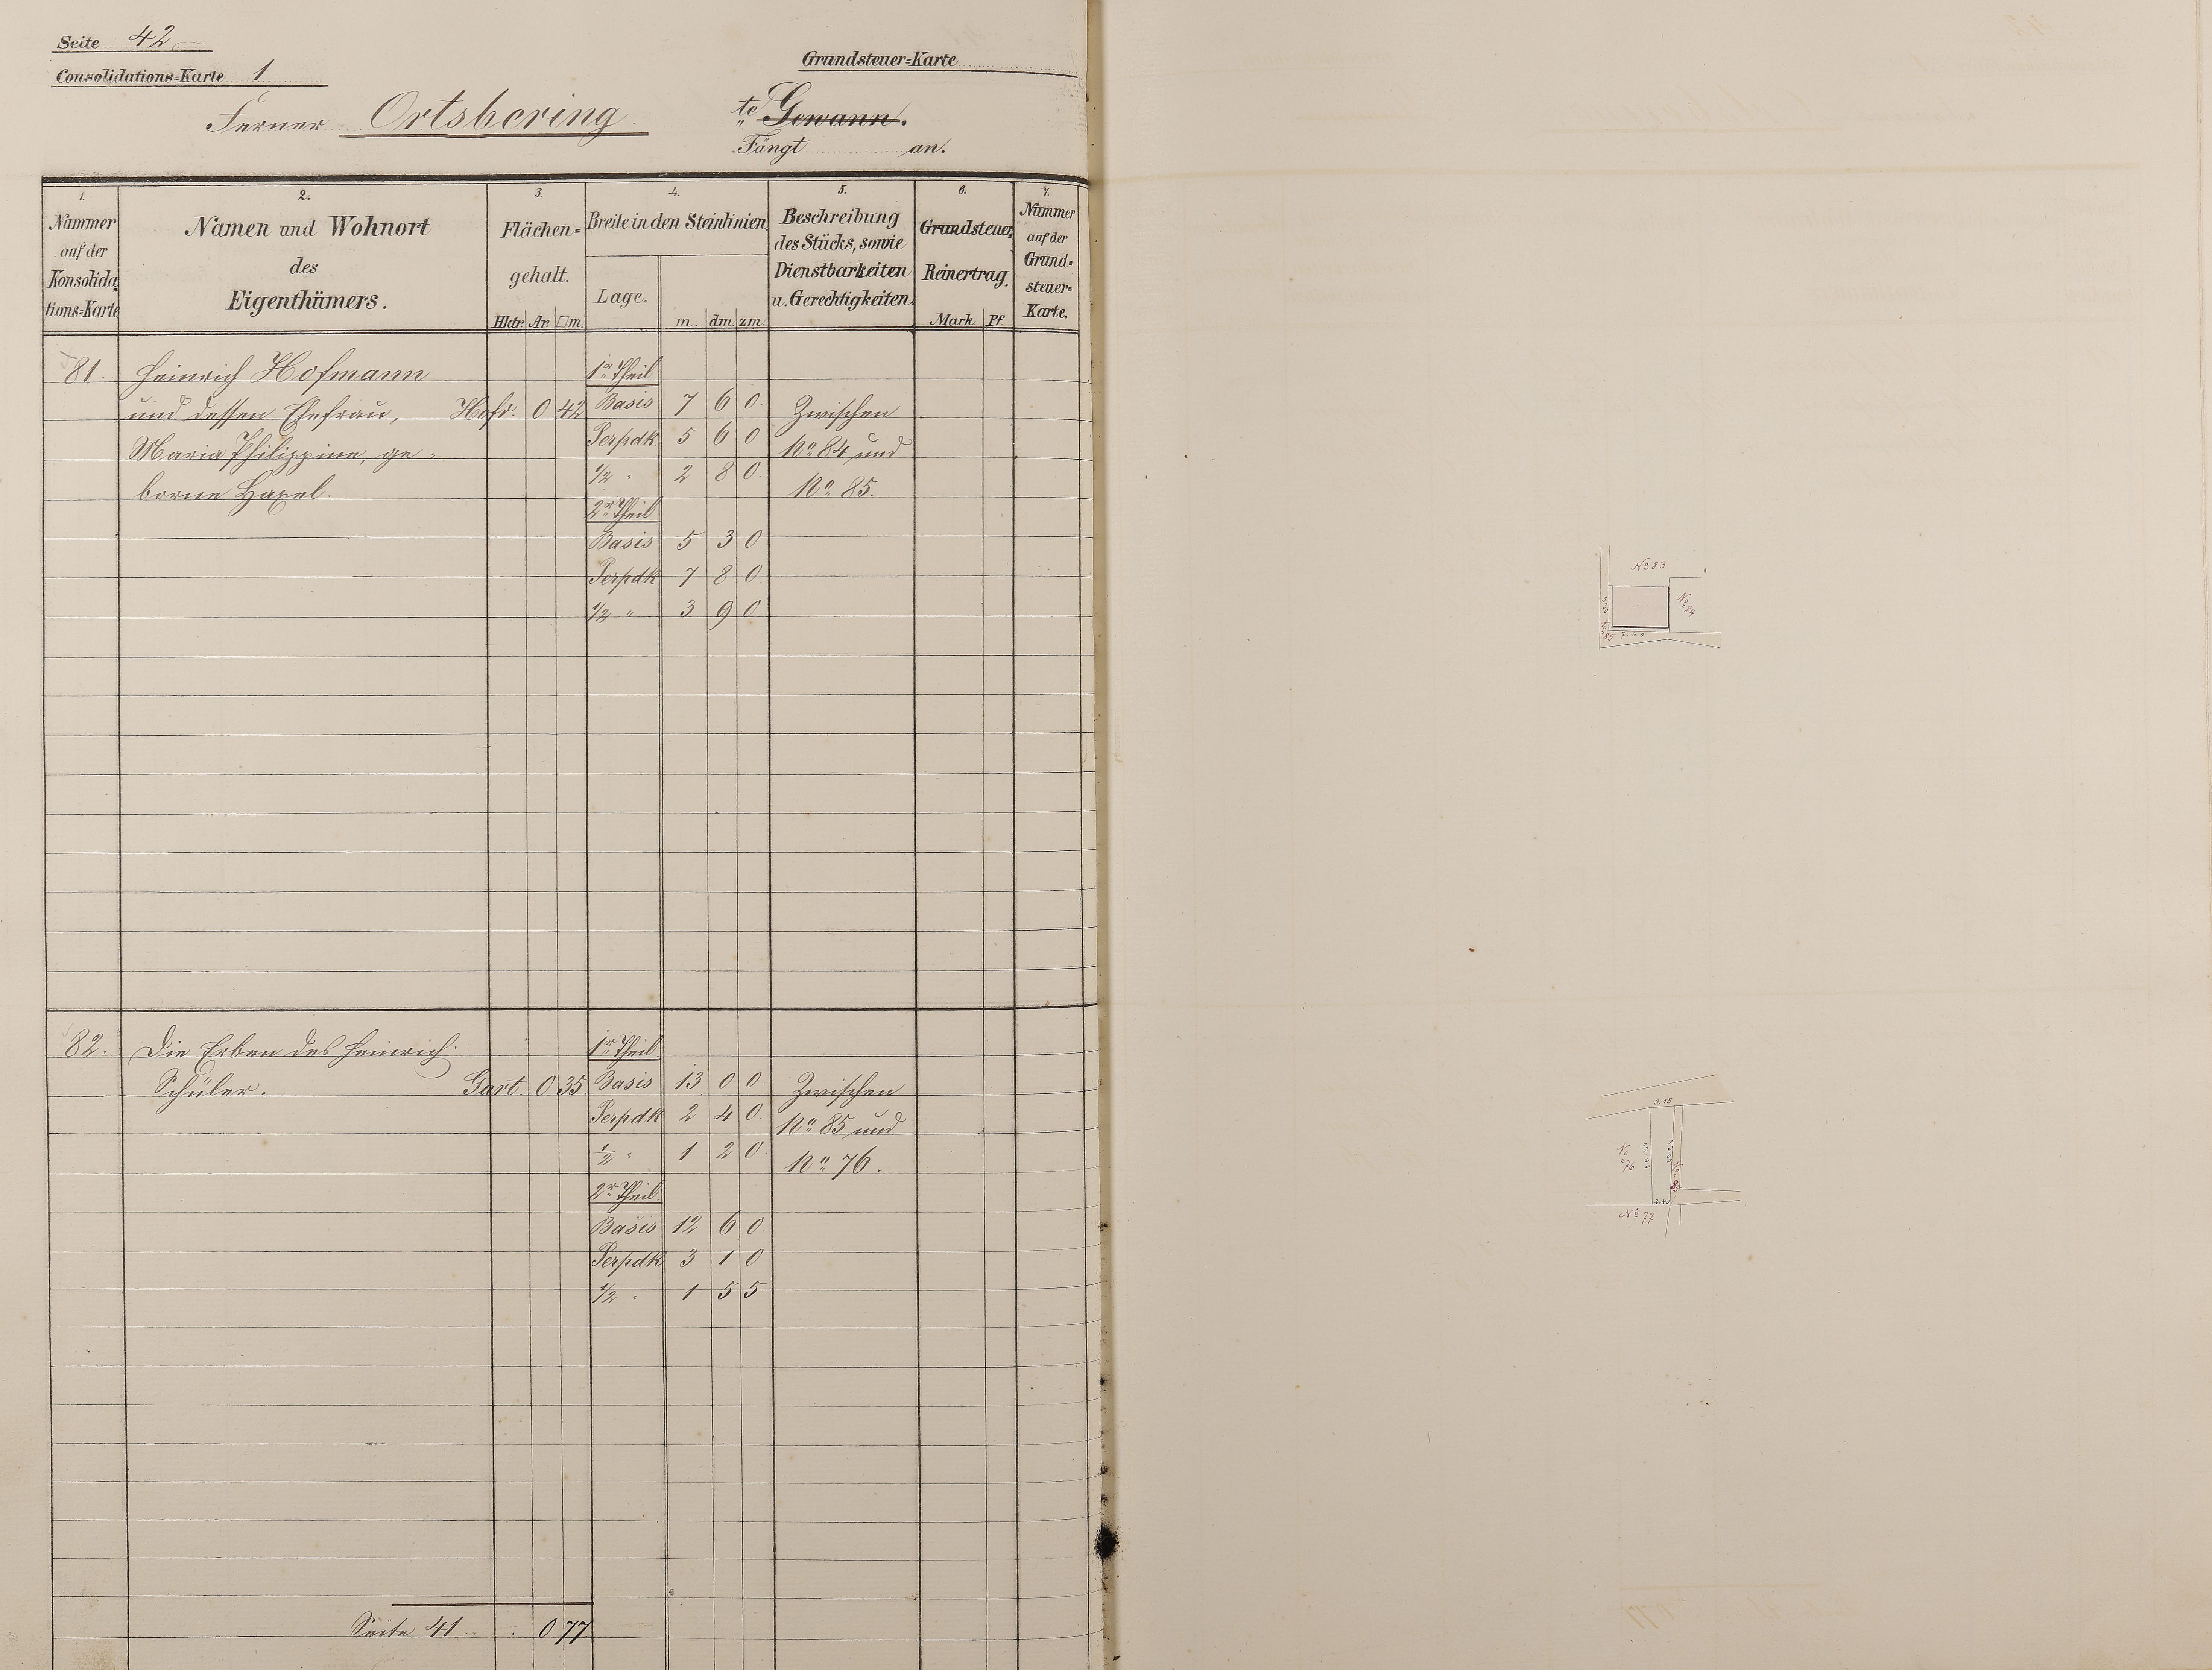 Seite 42
Consolidations-Karte 1
Grundsteuer-Karte
Ferner Ortsbering
te Gewann.
Fängt an.
1. 2. 3. 4. 5. 6. 7.
Nummer auf der Konsolidations-Karte
Namen und Wohnort des Eigenthümers.
Flächen-gehalt.
Hktr. Ar. □m.
Breite in den Steinlinien.
Lage. m. dm. zm.
Beschreibung des Stücks, sowie Dienstbarkeiten u. Gerechtigkeiten.
Grundsteuer-Reinertrag.
Mark Pf.
Nummer auf der Grund-steuer-Karte.
81. Heinrich Hofmann 1r Theil
und dessen Ehefrau, Hofr. 0 42 Basis 7 6 0 Zwischen
Maria Philippine, ge- Perpdk 5 6 0 No 84 und
borne Haxel. 1/2 " 2 8 0 No 85.
2r Theil
Basis 5 3 0
Perpdk 7 8 0
1/2 " 3 9 0
82. Die Erben des Heinrich 1r Theil
Schüler. Gart. 0 35 Basis 13 0 0 Zwischen
Perpdk 2 4 0 No 85 und
1/2 " 1 2 0 No 76.
2r Theil
Basis 12 6 0
Perpdk 3 1 0
1/2 " 1 5 5
Seite 41 . 0 77
No 83
No 84
85 7.60
3.15
No 76
2.40
No 77